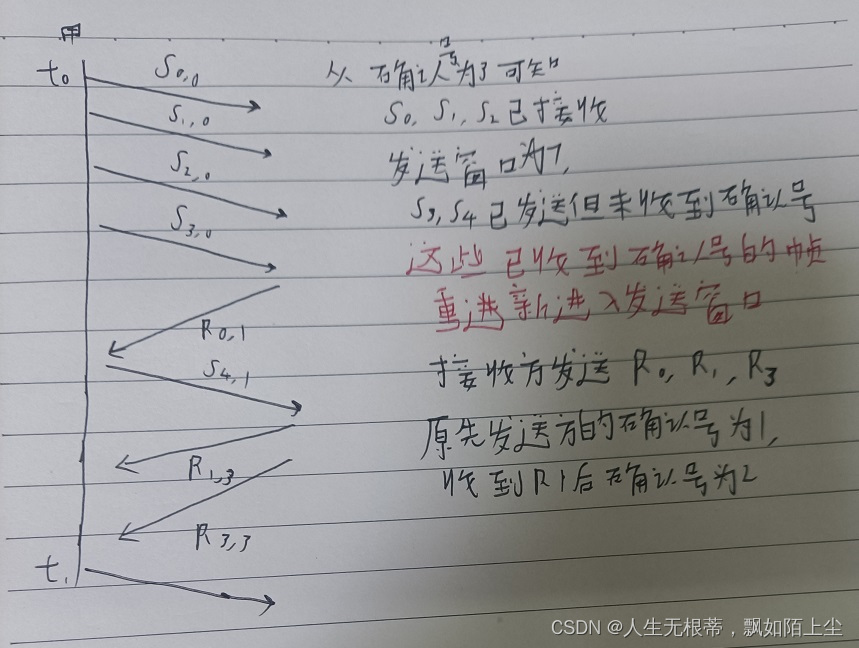 甲
t0
S0,0
S1,0
S2,0
S3,0
R0,1
S4,1
R1,3
R3,3
t1
从确认号为3可知
S0, S1, S2已接收
发送窗口为7,
S3, S4已发送但未收到确认号
这些已收到确认号的帧
重进新进入发送窗口
接收方发送 R0, R1, R3
原先发送方的确认号为1,
收到R1后确认号为2
CSDN @人生无根蒂，飘如陌上尘